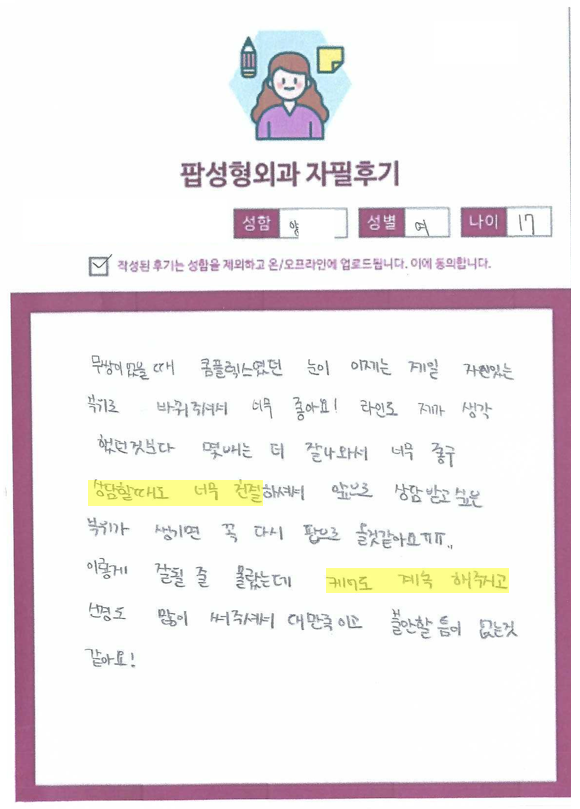 팝성형외과 자필후기
성함 양 성별 여 나이 17
작성된 후기는 성함을 제외하고 온/오프라인에 업로드됩니다. 이에 동의합니다.
무쌍이었을 때 콤플렉스였던 눈이 이제는 제일 자신있는
부위로 바뀌주셔서 너무 좋아요! 라인도 제가 생각
했던것보다 몇배는 더 잘나와서 너무 좋구
상담할때도 너무 친절하셔서 앞으로 상담받고 싶은
부위가 생기면 꼭 다시 팝으로 올것같아요ㅠㅠ..
이렇게 잘될 줄 몰랐는데 케어도 계속 해주시고
신경도 많이 써주셔서 대만족이고 불안할 틈이 없는것
같아요!